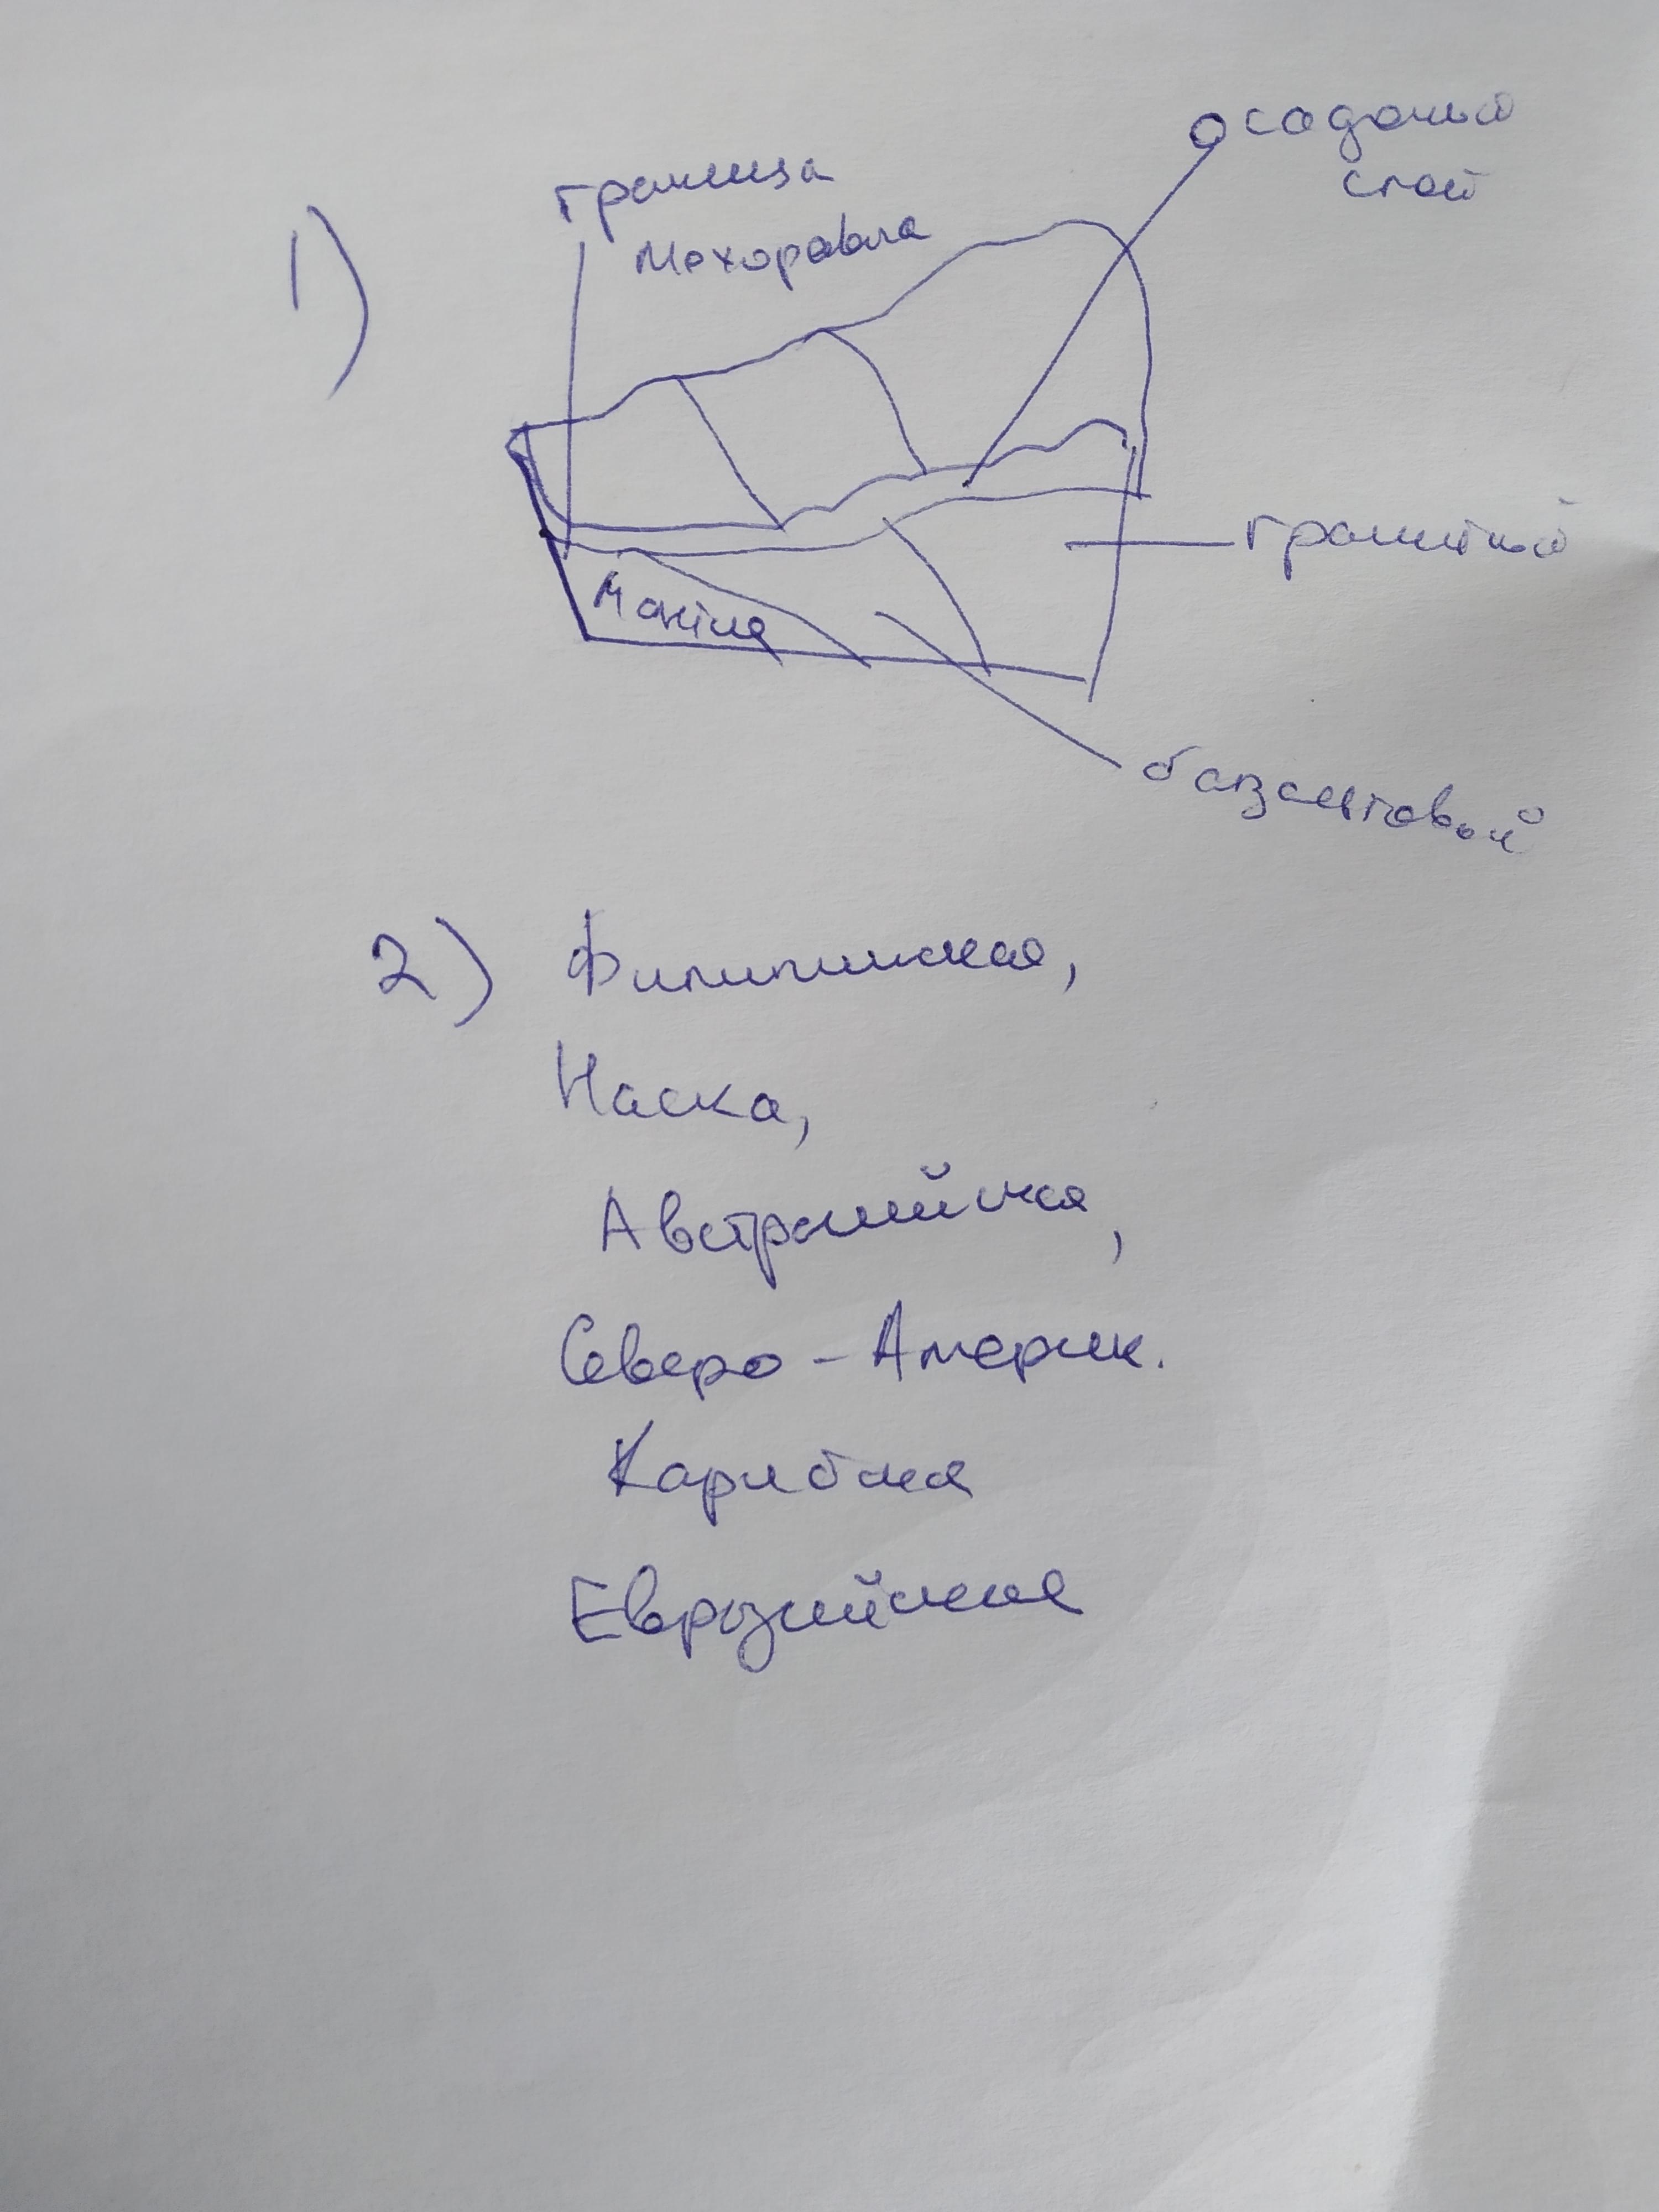 1)
граница
Мохоровича
Осадочный
слой
гранитный
Мантия
базальтовый
2) Филипинская,
Наска,
Австралийская,
Северо-Америк.
Карибская
Евразийская